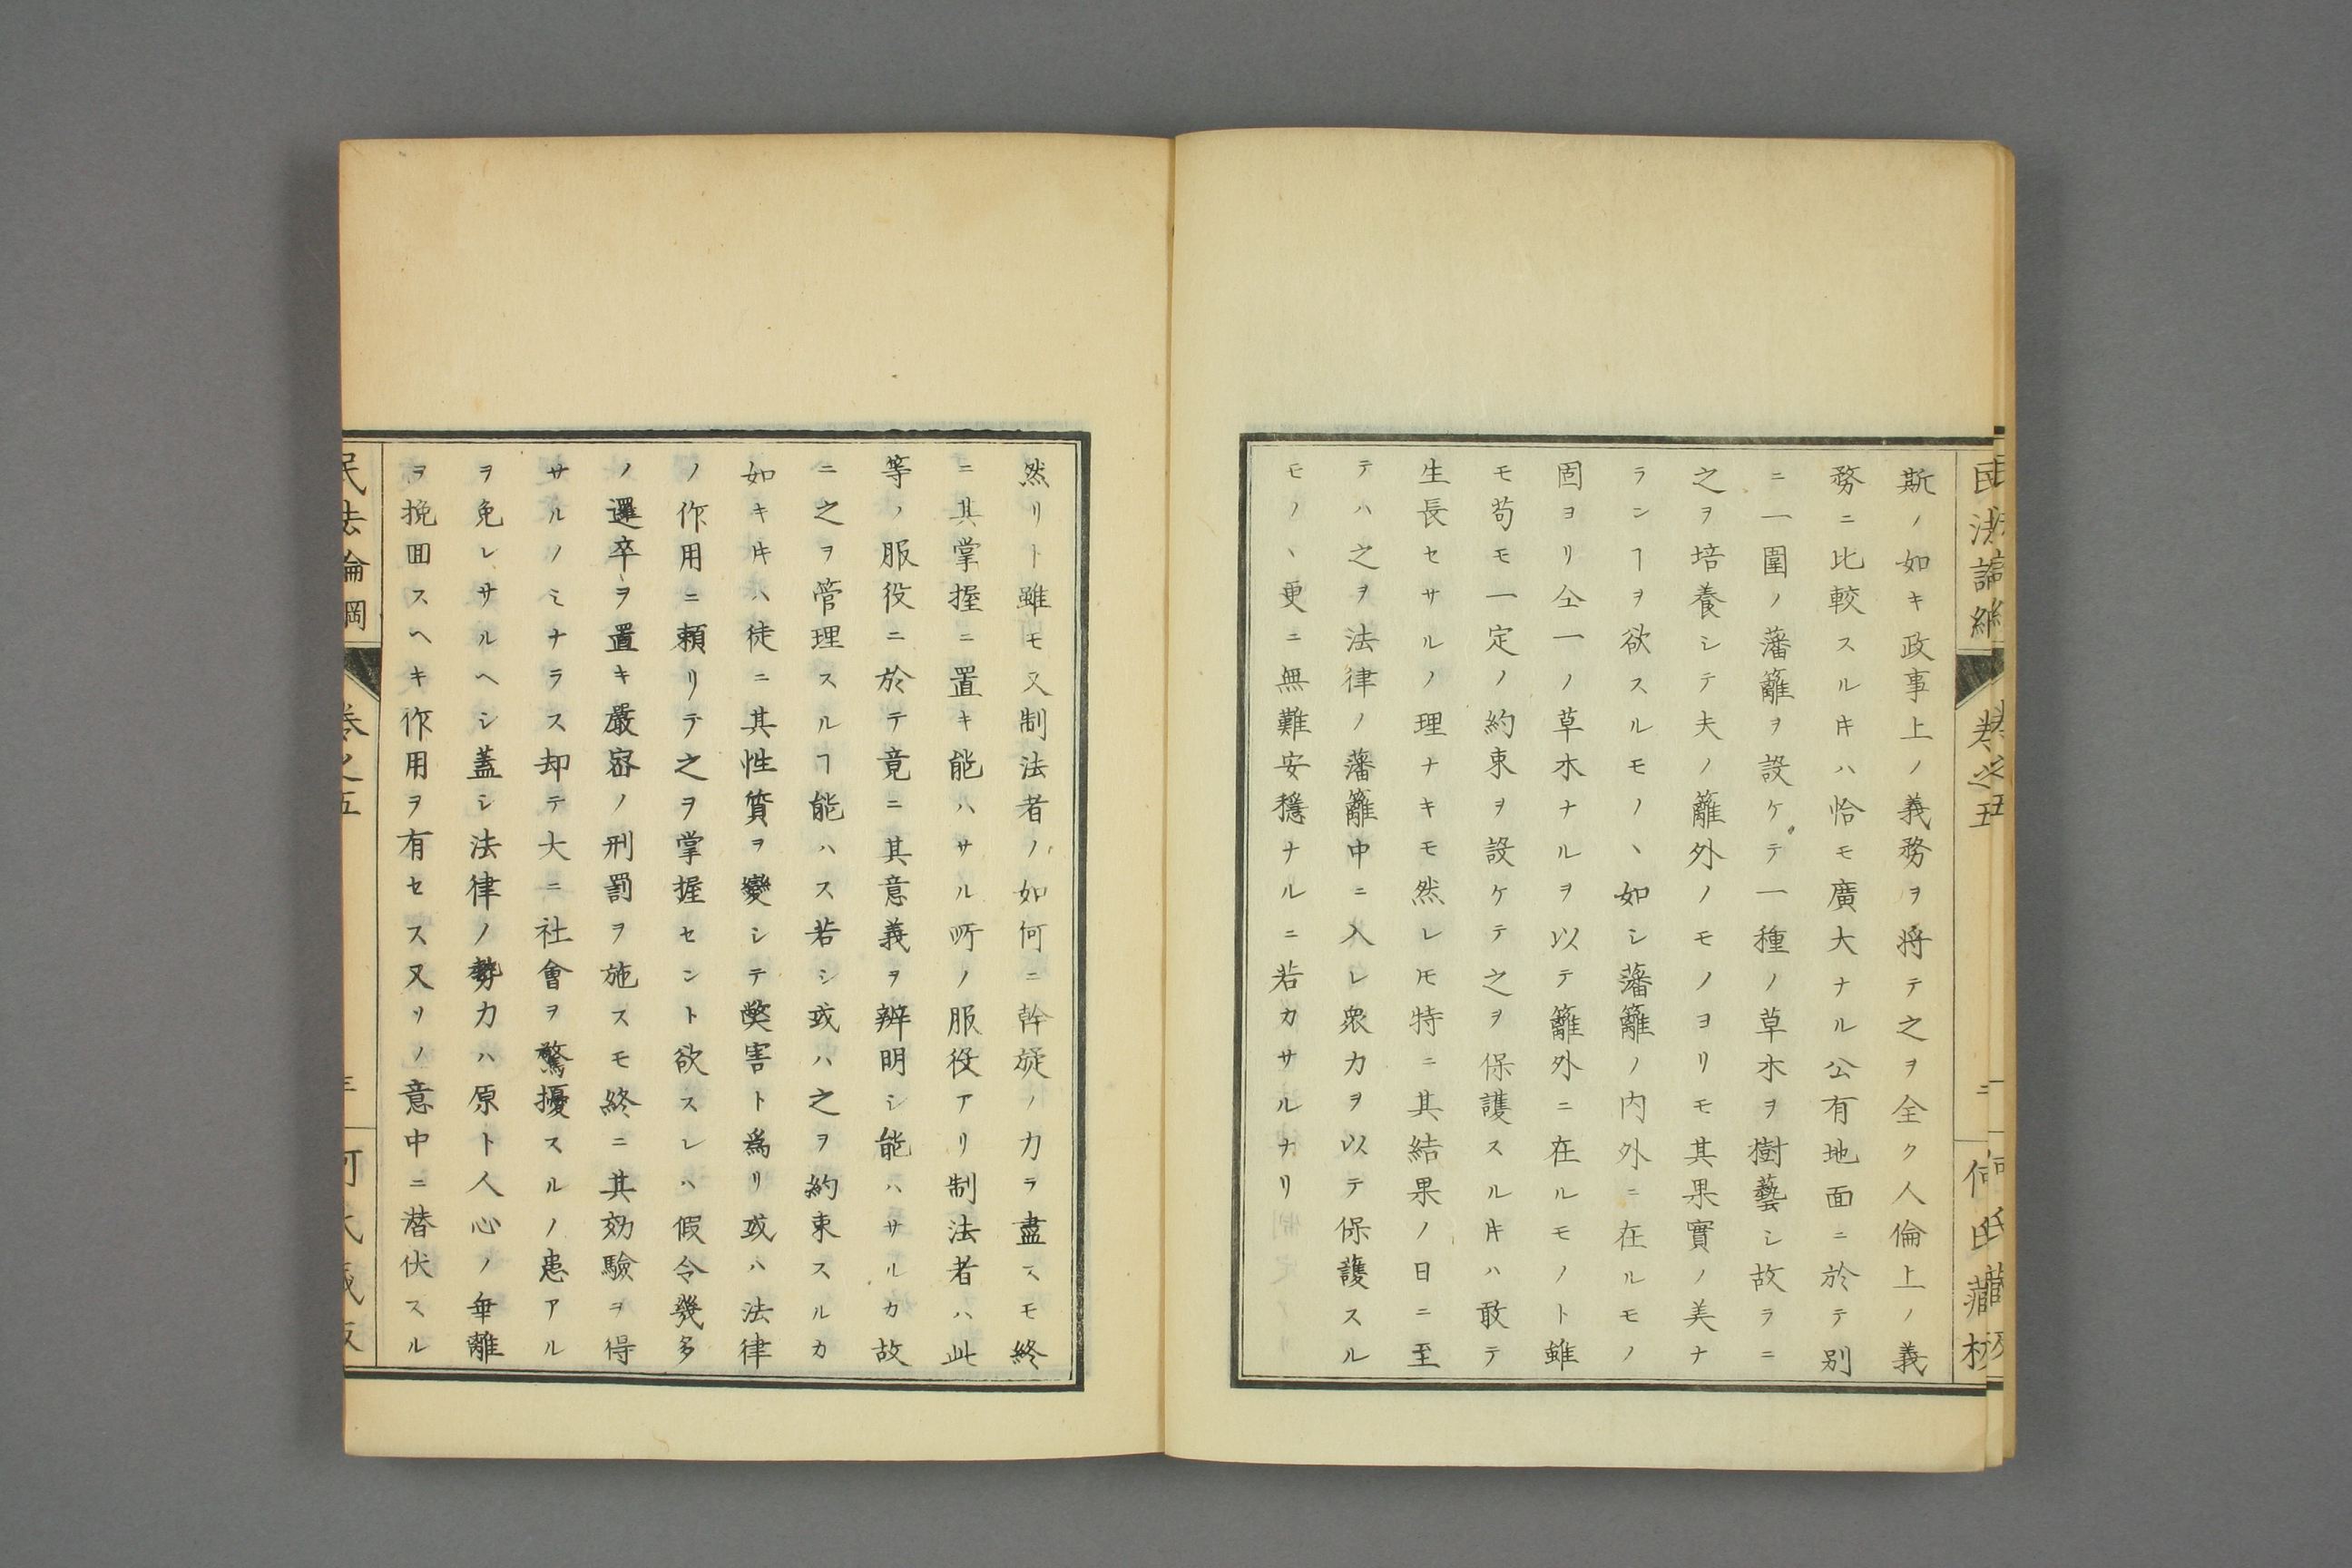 民法論綱
卷之五
二
何氏藏板
斯ノ如キ政事上ノ義務ヲ将テ之ヲ全ク人倫上ノ義
務ニ比較スルヿハ恰モ廣大ナル公有地面ニ於テ別
ニ一圍ノ藩籬ヲ設ケテ一種ノ草木ヲ樹藝シ故ラニ
之ヲ培養シテ夫ノ籬外ノモノヨリモ其果實ノ美ナ
ランヿヲ欲スルモノヽ如シ藩籬ノ内外ニ在ルモノ
固ヨリ仝一ノ草木ナルヲ以テ籬外ニ在ルモノト雖
モ苟モ一定ノ約束ヲ設ケテ之ヲ保護スル𪜈ハ敢テ
生長セサルノ理ナキモ然レ𪜈特ニ其結果ノ日ニ至
テハ之ヲ法律ノ藩籬中ニ入レ衆力ヲ以テ保護スル
モノヽ更ニ無難安穩ナルニ若カサルナリ
然リト雖モ又制法者ノ如何ニ幹旋ノ力ラ盡スモ終
ニ其掌握ニ置キ能ハサル所ノ服役アリ制法者ハ此
等ノ服役ニ於テ竟ニ其意義ヲ辨明シ能ハサルカ故
ニ之ヲ管理スルヿ能ハス若シ或ハ之ヲ約束スルカ
如キ𪜈ハ徒ニ其性質ヲ變シテ獘害ト爲リ或ハ法律
ノ作用ニ頼リテ之ヲ掌握セント欲スレハ假令幾多
ノ邏卒ヲ置キ嚴密ノ刑罰ヲ施スモ終ニ其効驗ヲ得
サルノミナラス却テ大ニ社會ヲ驚擾スルノ患アル
ヲ免レサルヘシ蓋シ法律ノ勢力ハ原ト人心ノ乖離
ヲ挽回スヘキ作用ヲ有セス又リノ意中ニ潜伏スル
民法論綱
卷之五